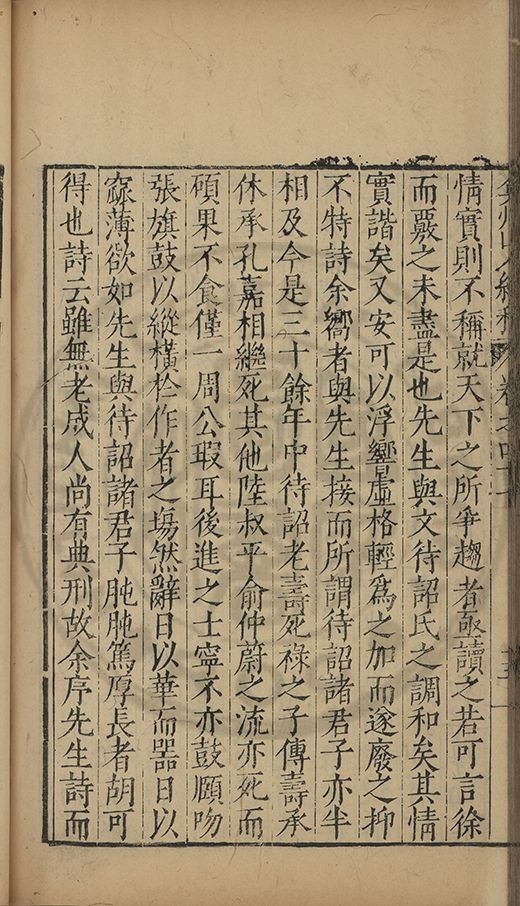 弇州山人續稿 卷之四十
情實則不稱就天下之所爭趨者亟讀之若可言徐
而覈之未盡是也先生與文待詔氏之調和矣其情
實諧矣又安可以浮響虛格輕爲之加而遂廢之抑
不特詩余嚮者與先生接而所謂待詔諸君子亦半
相及今是三十餘年中待詔老壽死祿之子傳壽承
休承孔嘉相繼死其他陸叔平俞仲蔚之流亦死而
碩果不食僅一周公瑕耳後進之士寧不亦鼓頤吻
張旗鼓以縱橫於作者之塲然辭日以華而器日以
窳薄欲如先生與待詔諸君子肫肫篤厚長者胡可
得也詩云雖無老成人尚有典刑故余序先生詩而